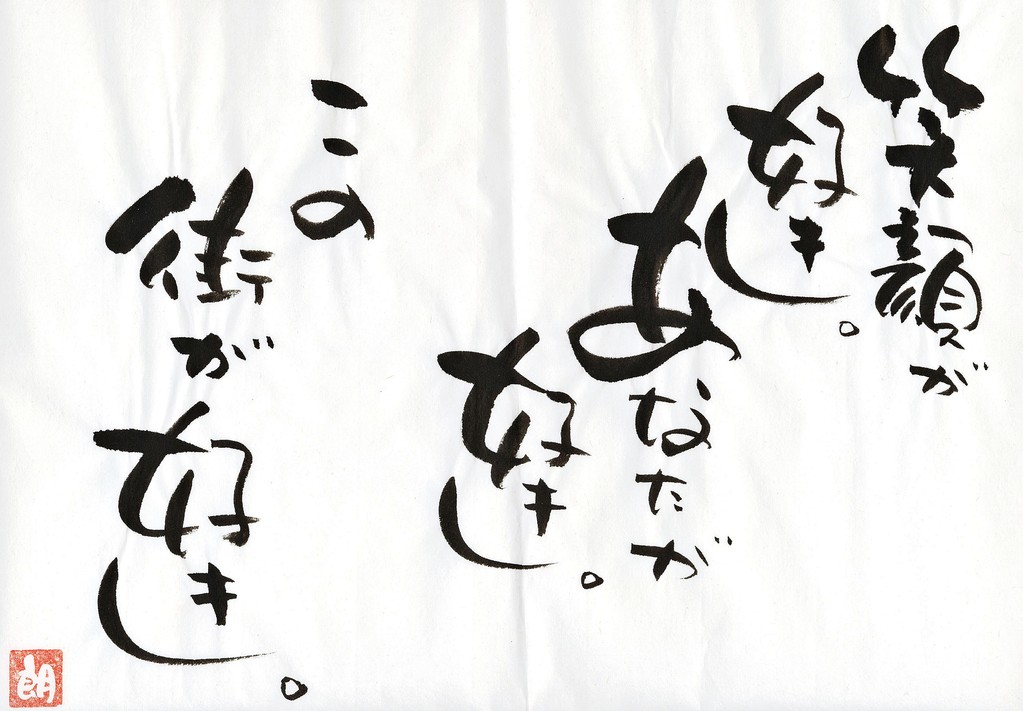 笑顔が
好き。
あなたが
好き。
この
街が好き。
朗